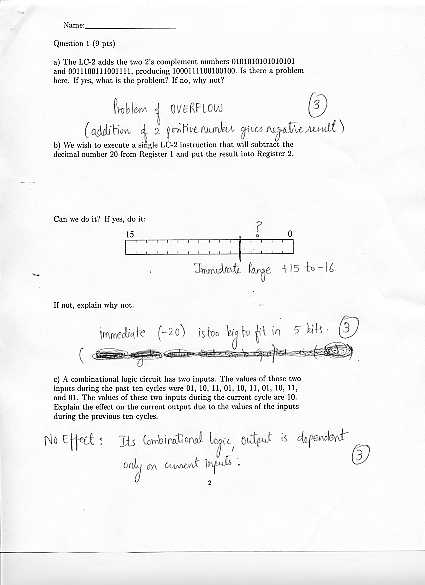 Name:
Question 1 (9 pts)
a) The LC-2 adds the two 2's complement numbers 0101010101010101
and 0011100111001111, producing 1000111100100100. Is there a problem
here. If yes, what is the problem? If no, why not?
Problem of OVERFLOW
3
(addition of 2 positive number gives negative result)
b) We wish to execute a single LC-2 instruction that will subtract the
decimal number 20 from Register 1 and put the result into Register 2.
Can we do it? If yes, do it:
?
15 0
Immediate Range +15 to -16
If not, explain why not.
immediate (-20) is too big to fit in 5 bits. 3
(
c) A combinational logic circuit has two inputs. The values of those two
inputs during the past ten cycles were 01, 10, 11, 01, 10, 11, 01, 10, 11,
and 01. The values of these two inputs during the current cycle are 10.
Explain the effect on the current output due to the values of the inputs
during the previous ten cycles.
No Effect: Its Combinational Logic, output is dependent
only on current inputs.
3
2